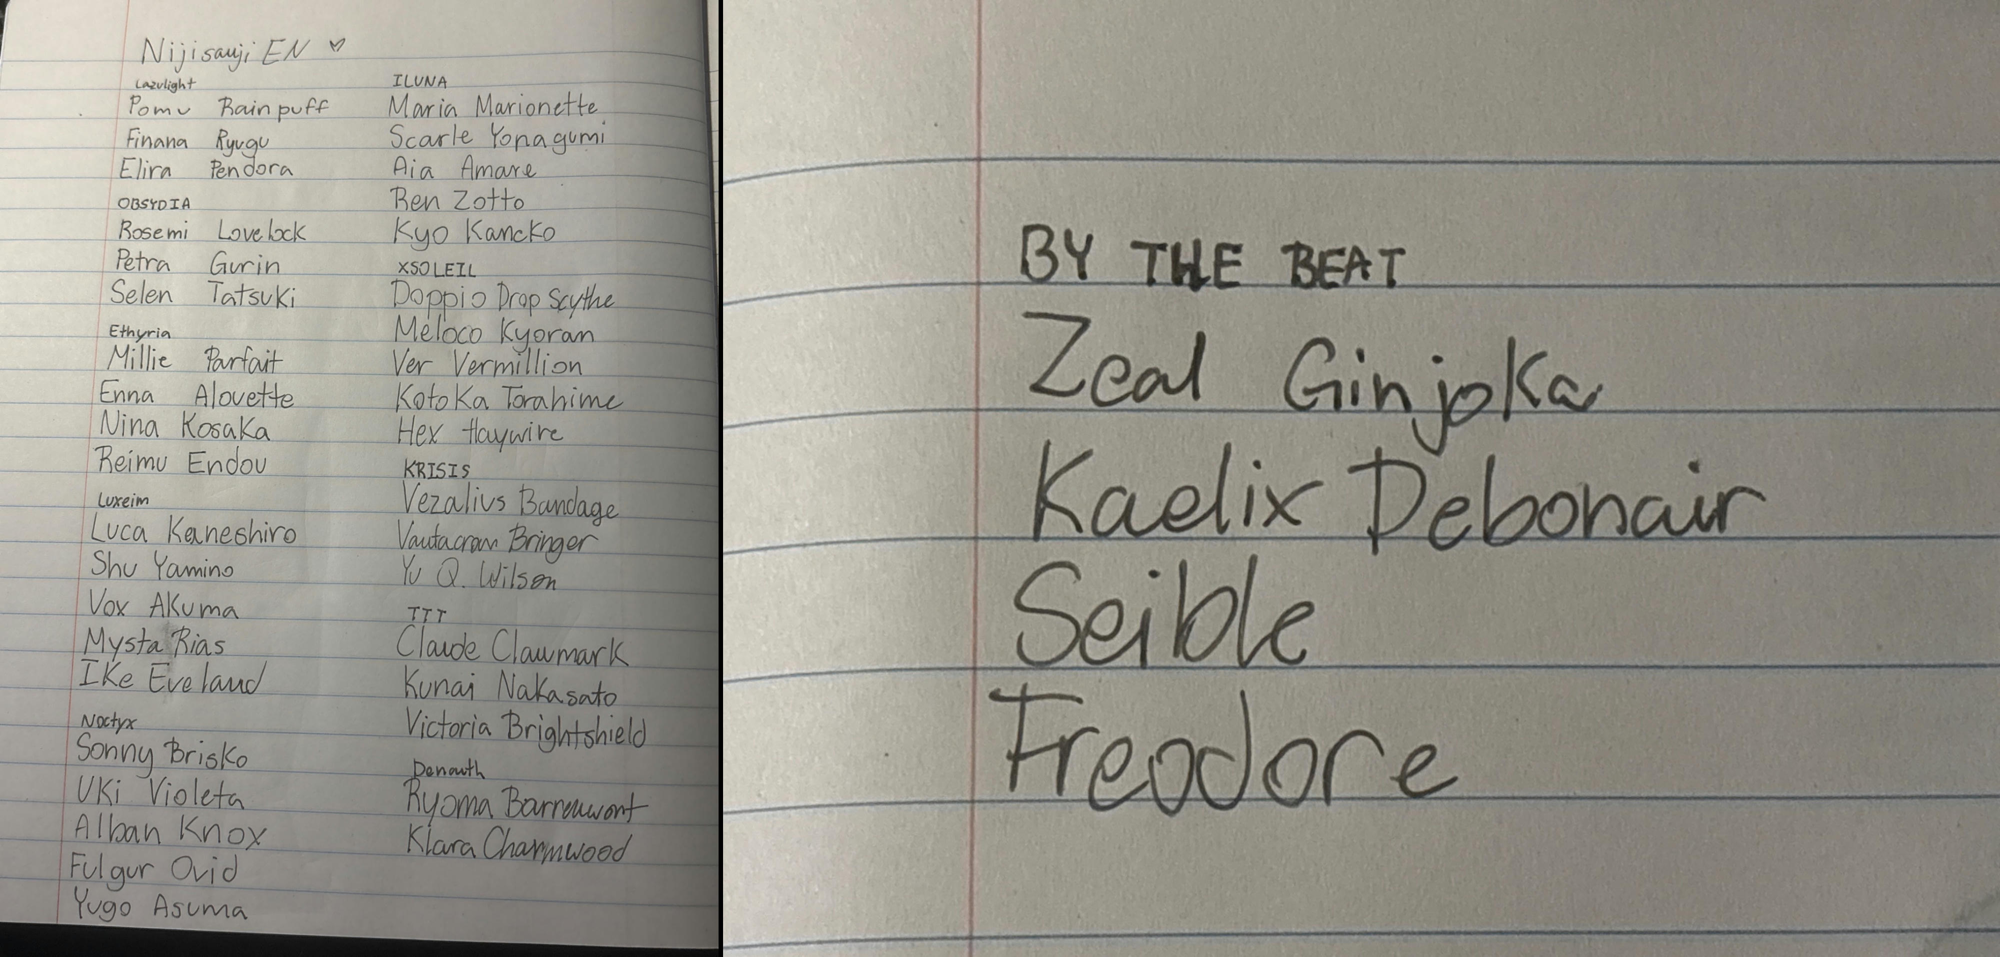 Nijisanji EN ♡
Lazulight
Pomu Rainpuff
Finana Ryugu
Elira Pendora
OBSYDIA
Rosemi Lovelock
Petra Gurin
Selen Tatsuki
Ethyria
Millie Parfait
Enna Alouette
Nina Kosaka
Reimu Endou
Luxeim
Luca Kaneshiro
Shu Yamino
Vox Akuma
Mysta Rias
Ike Eveland
Noctyx
Sonny Brisko
Uki Violeta
Alban Knox
Fulgur Ovid
Yugo Asuma
ILUNA
Maria Marionette
Scarle Yonagumi
Aia Amare
Ren Zotto
Kyo Kaneko
XSOLEIL
Doppio Drop Scythe
Meloco Kyoran
Ver Vermillion
Kotoka Torahime
Hex Haywire
KRISIS
Vezalius Bandage
Vantacrow Bringer
Yu Q. Wilson
TTT
Claude Clawmark
Kunai Nakasato
Victoria Brightshield
Ryoma Barrenwort
Klara Charmwood
BY THE BEAT
Zeal Ginjoka
Kaelix Debonair
Seible
Freodore